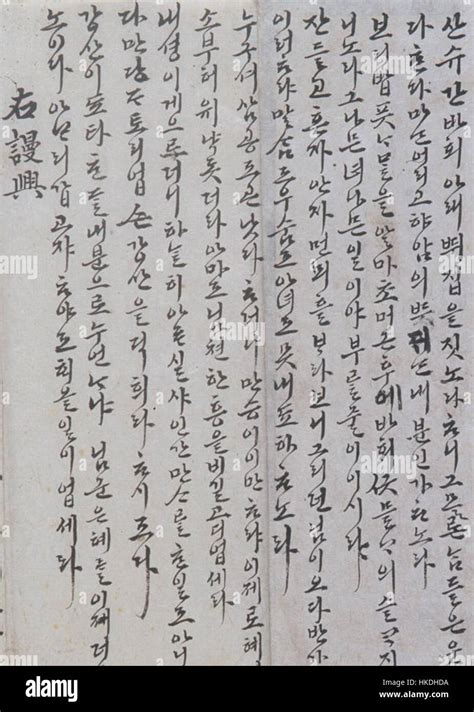 산슈간 바회 아래 뛰집을 짓노라 ᄒᆞ니 그 모론 ᄂᆞᆷ들은 운
다 ᄒᆞᆫ다마ᄂᆞᆫ 어리고 햐암의 뜻의ᄂᆞᆫ 내 분인가 ᄒᆞ노라
보리밥 픗ᄂᆞ믈을 알마초 머근 후에 바횟 긋 믉ᄀᆞ의 슬ᄏᆞ지
니노라 그나믄 녀나믄 일이야 부를 줄이 이시랴
잔 들고 혼자 안자 먼 뫼흘 ᄇᆞ라보니 그리던 님이 오다 반가
이러ᄒᆞ랴 말ᄉᆞᆷ도 우움도 아녀도 몯내 됴하 ᄒᆞ노라
누구셔 삼공도곤 낫다 ᄒᆞ더니 만승이 이만ᄒᆞ랴 이제로 혜
소부허위 냑돗더라 아마도 님쳔 한흥을 비길 고디 업세라
내 셩이 게으르더니 하ᄂᆞᆯ히 아ᄅᆞ실샤 인간만ᄉᆞ를 ᄒᆞᆫ 일도 아니
다만당 ᄃᆞ토리 업슨 강산을 딕희라 ᄒᆞ시도다
강산이 됴타 ᄒᆞᆫᄃᆞᆯ 내 분으로 누언ᄂᆞ냐 님군 은혜를 이제 더
노이다 아ᄆᆞ리 갑고쟈 ᄒᆞ야도 ᄒᆡ올 일이 업세라
右謾興
alamy
alamy
a
Image ID: HKDHDA
www.alamy.com